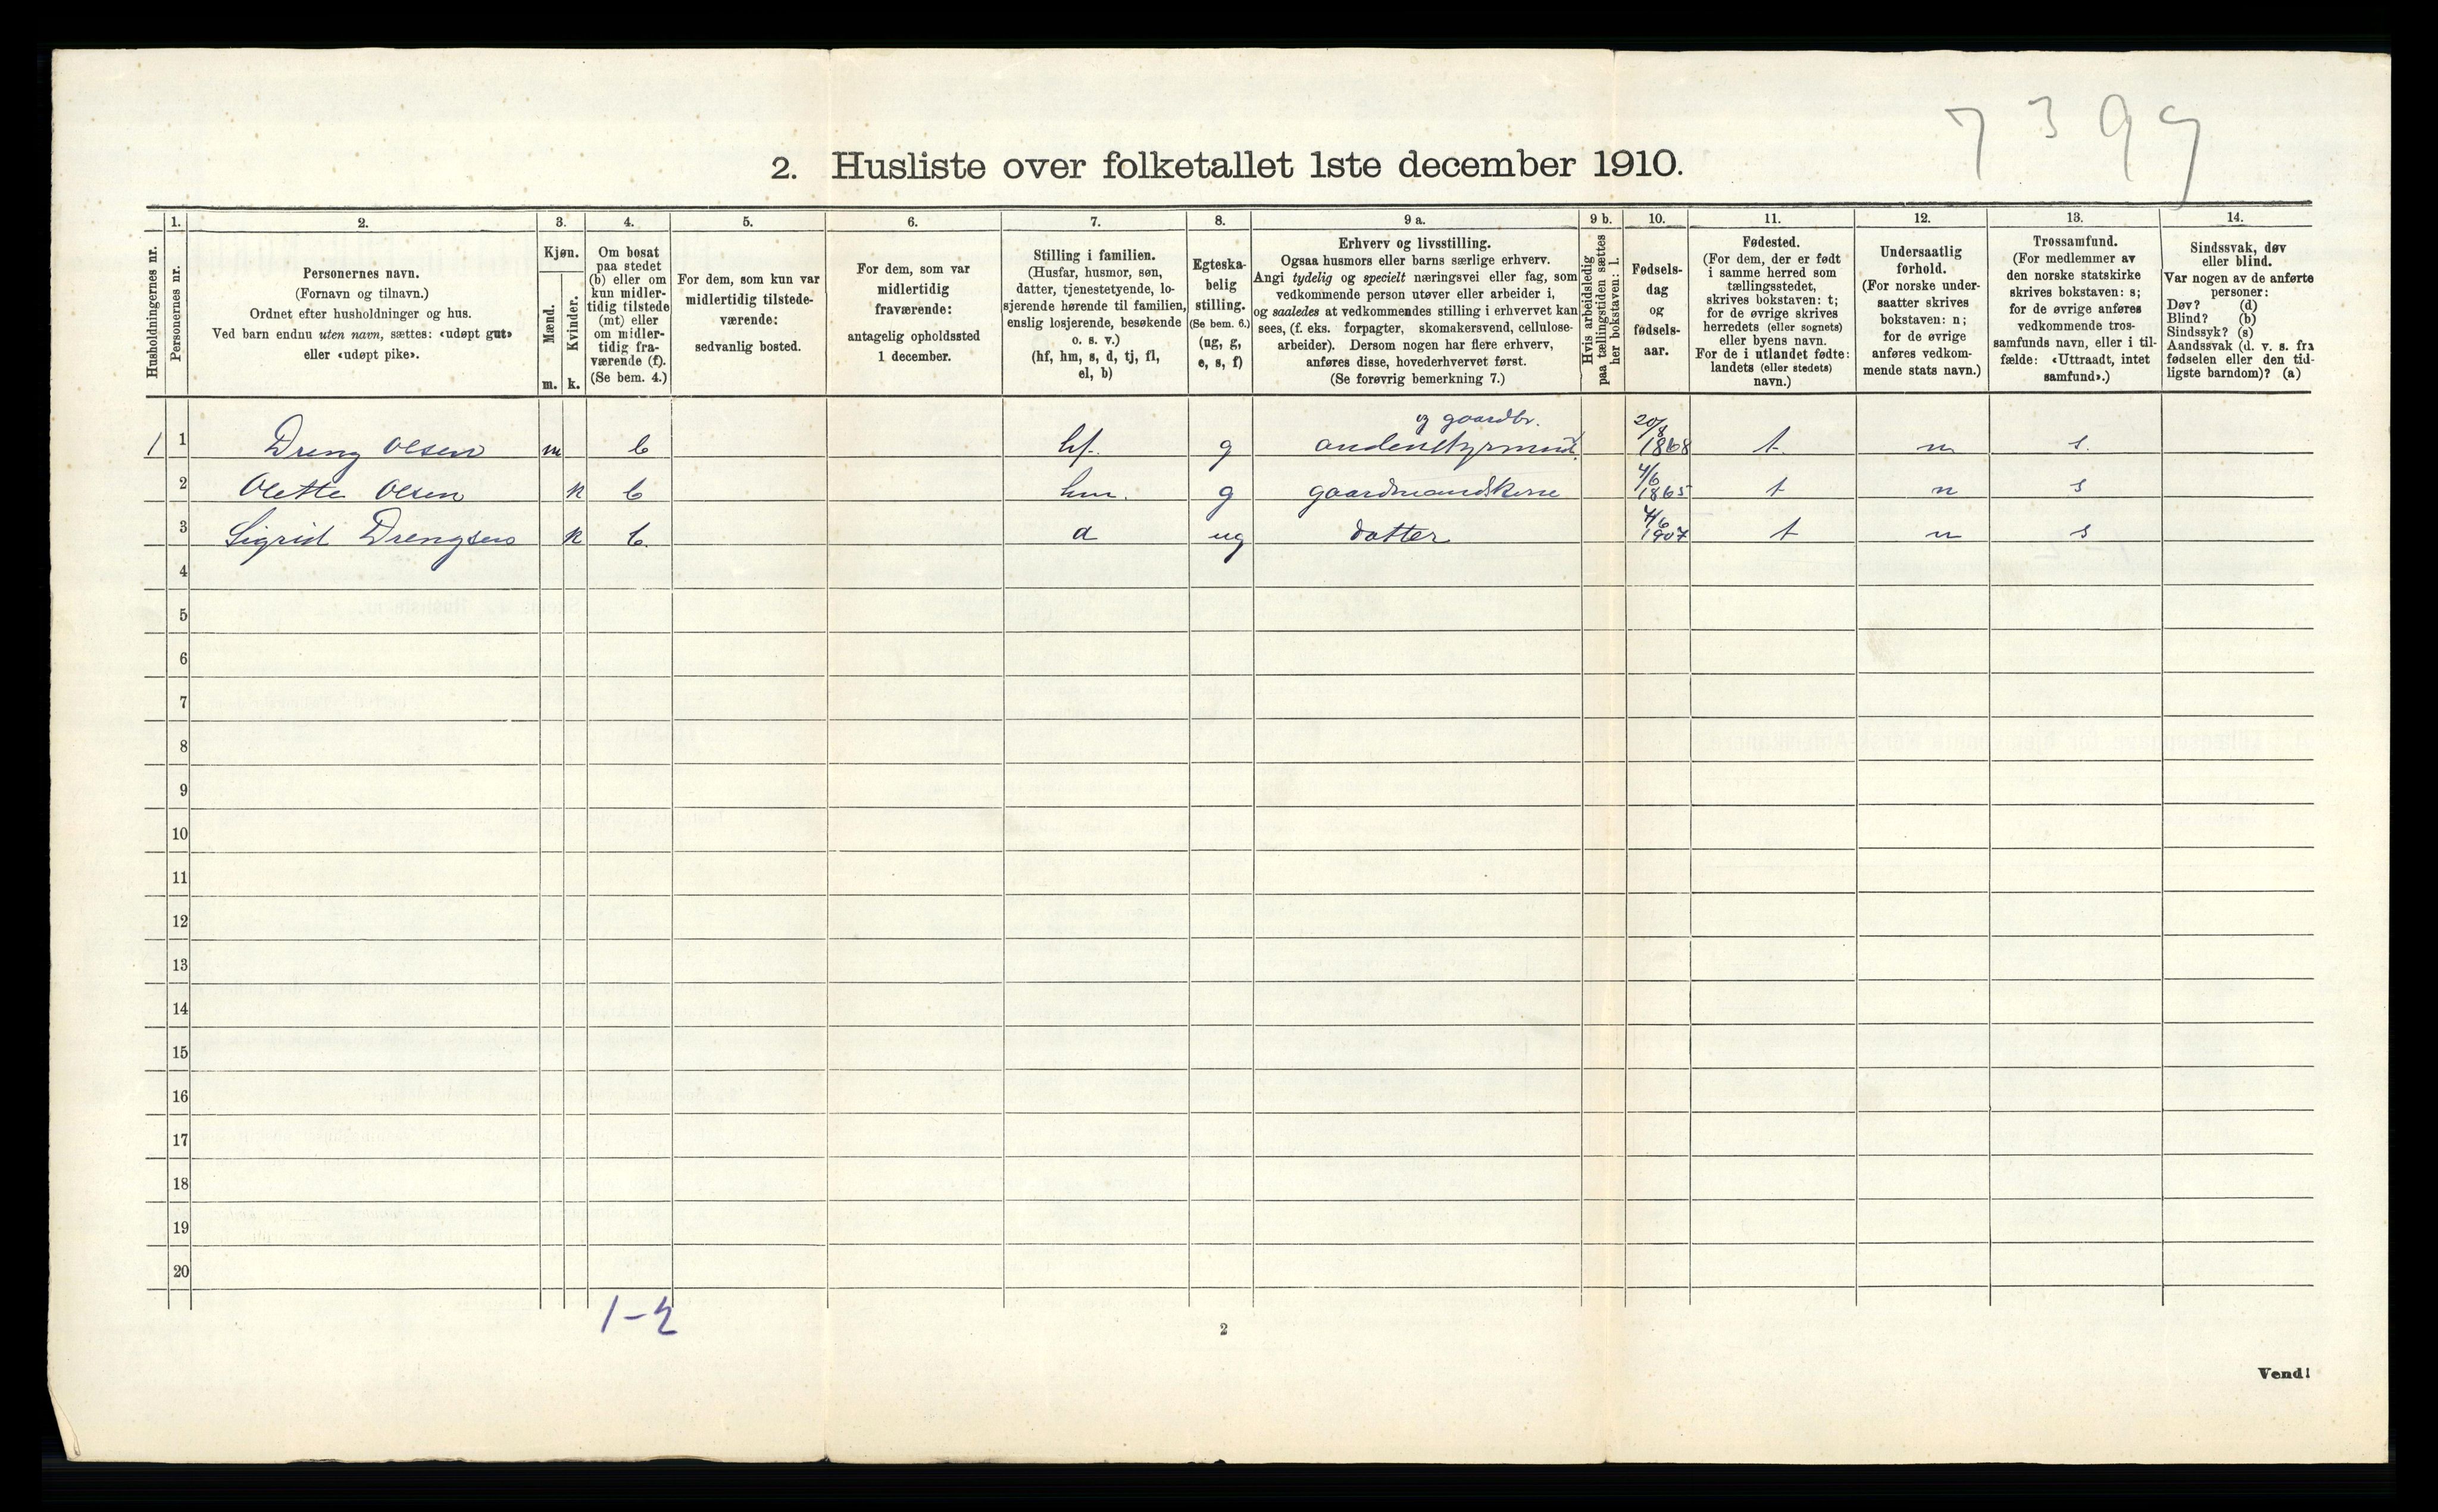 7399
2. Husliste over folketallet 1ste december 1910.
Husholdningernes nr.
1.
Personernes nr.
2.
Personernes navn.
(Fornavn og tilnavn.)
Ordnet efter husholdninger og hus.
Ved barn endnu uten navn, sættes: «udøpt gut»
eller «udøpt pike».
3.
Kjøn.
Mænd.
m.
Kvinder.
k.
4.
Om bosat
paa stedet
(b) eller om
kun midler-
tidig tilstede
(mt) eller
om midler-
tidig fra-
værende (f).
(Se bem. 4.)
5.
For dem, som kun var
midlertidig tilstede-
værende:
sedvanlig bosted.
6.
For dem, som var
midlertidig
fraværende:
antagelig opholdssted
1 december.
7.
Stilling i familien.
(Husfar, husmor, søn,
datter, tjenestetyende, lo-
sjerende hørende til familien,
enslig losjerende, besøkende
o. s. v.)
(hf, hm, s, d, tj, fl,
el, b)
8.
Egteska-
belig
stilling.
(Se bem. 6.)
(ug, g,
e, s, f)
9 a.
Erhverv og livsstilling.
Ogsaa husmors eller barns særlige erhverv.
Angi tydelig og specielt næringsvei eller fag, som
vedkommende person utøver eller arbeider i,
og saaledes at vedkommendes stilling i erhvervet kan
sees, (f. eks. forpagter, skomakersvend, cellulose-
arbeider). Dersom nogen har flere erhverv,
anføres disse, hovederhvervet først.
(Se forøvrig bemerkning 7.)
9 b.
Hvis arbeidsledig
paa tællingstiden sættes
her bokstaven: l.
10.
Fødsels-
dag
og
fødsels-
aar.
11.
Fødested.
(For dem, der er født
i samme herred som
tællingsstedet,
skrives bokstaven: t;
for de øvrige skrives
herredets (eller sognets)
eller byens navn.
For de i utlandet fødte:
landets (eller stedets)
navn.)
12.
Undersaatlig
forhold.
(For norske under-
saatter skrives
bokstaven: n;
for de øvrige
anføres vedkom-
mende stats navn.)
13.
Trossamfund.
(For medlemmer av
den norske statskirke
skrives bokstaven: s;
for de øvrige anføres
vedkommende tros-
samfunds navn, eller i til-
fælde: «Uttraadt, intet
samfund».)
14.
Sindssvak, døv
eller blind.
Var nogen av de anførte
personer:
Døv? (d)
Blind? (b)
Sindssyk? (s)
Aandssvak (d. v. s. fra
fødselen eller den tid-
ligste barndom)? (a)
og gaardbr.
1 1 Dreng Olsen m b hf. g andenstyrmand 20/8 1868 t. n s.
2 Olette Olsen k b hm. g gaardmandskone 4/6 1865 t n s
3 Sigrid Drengsen k b. d ug datter 4/6 1907 t n s
4
5
6
7
8
9
10
11
12
13
14
15
16
17
18
19
20
1-2
2
Vend!